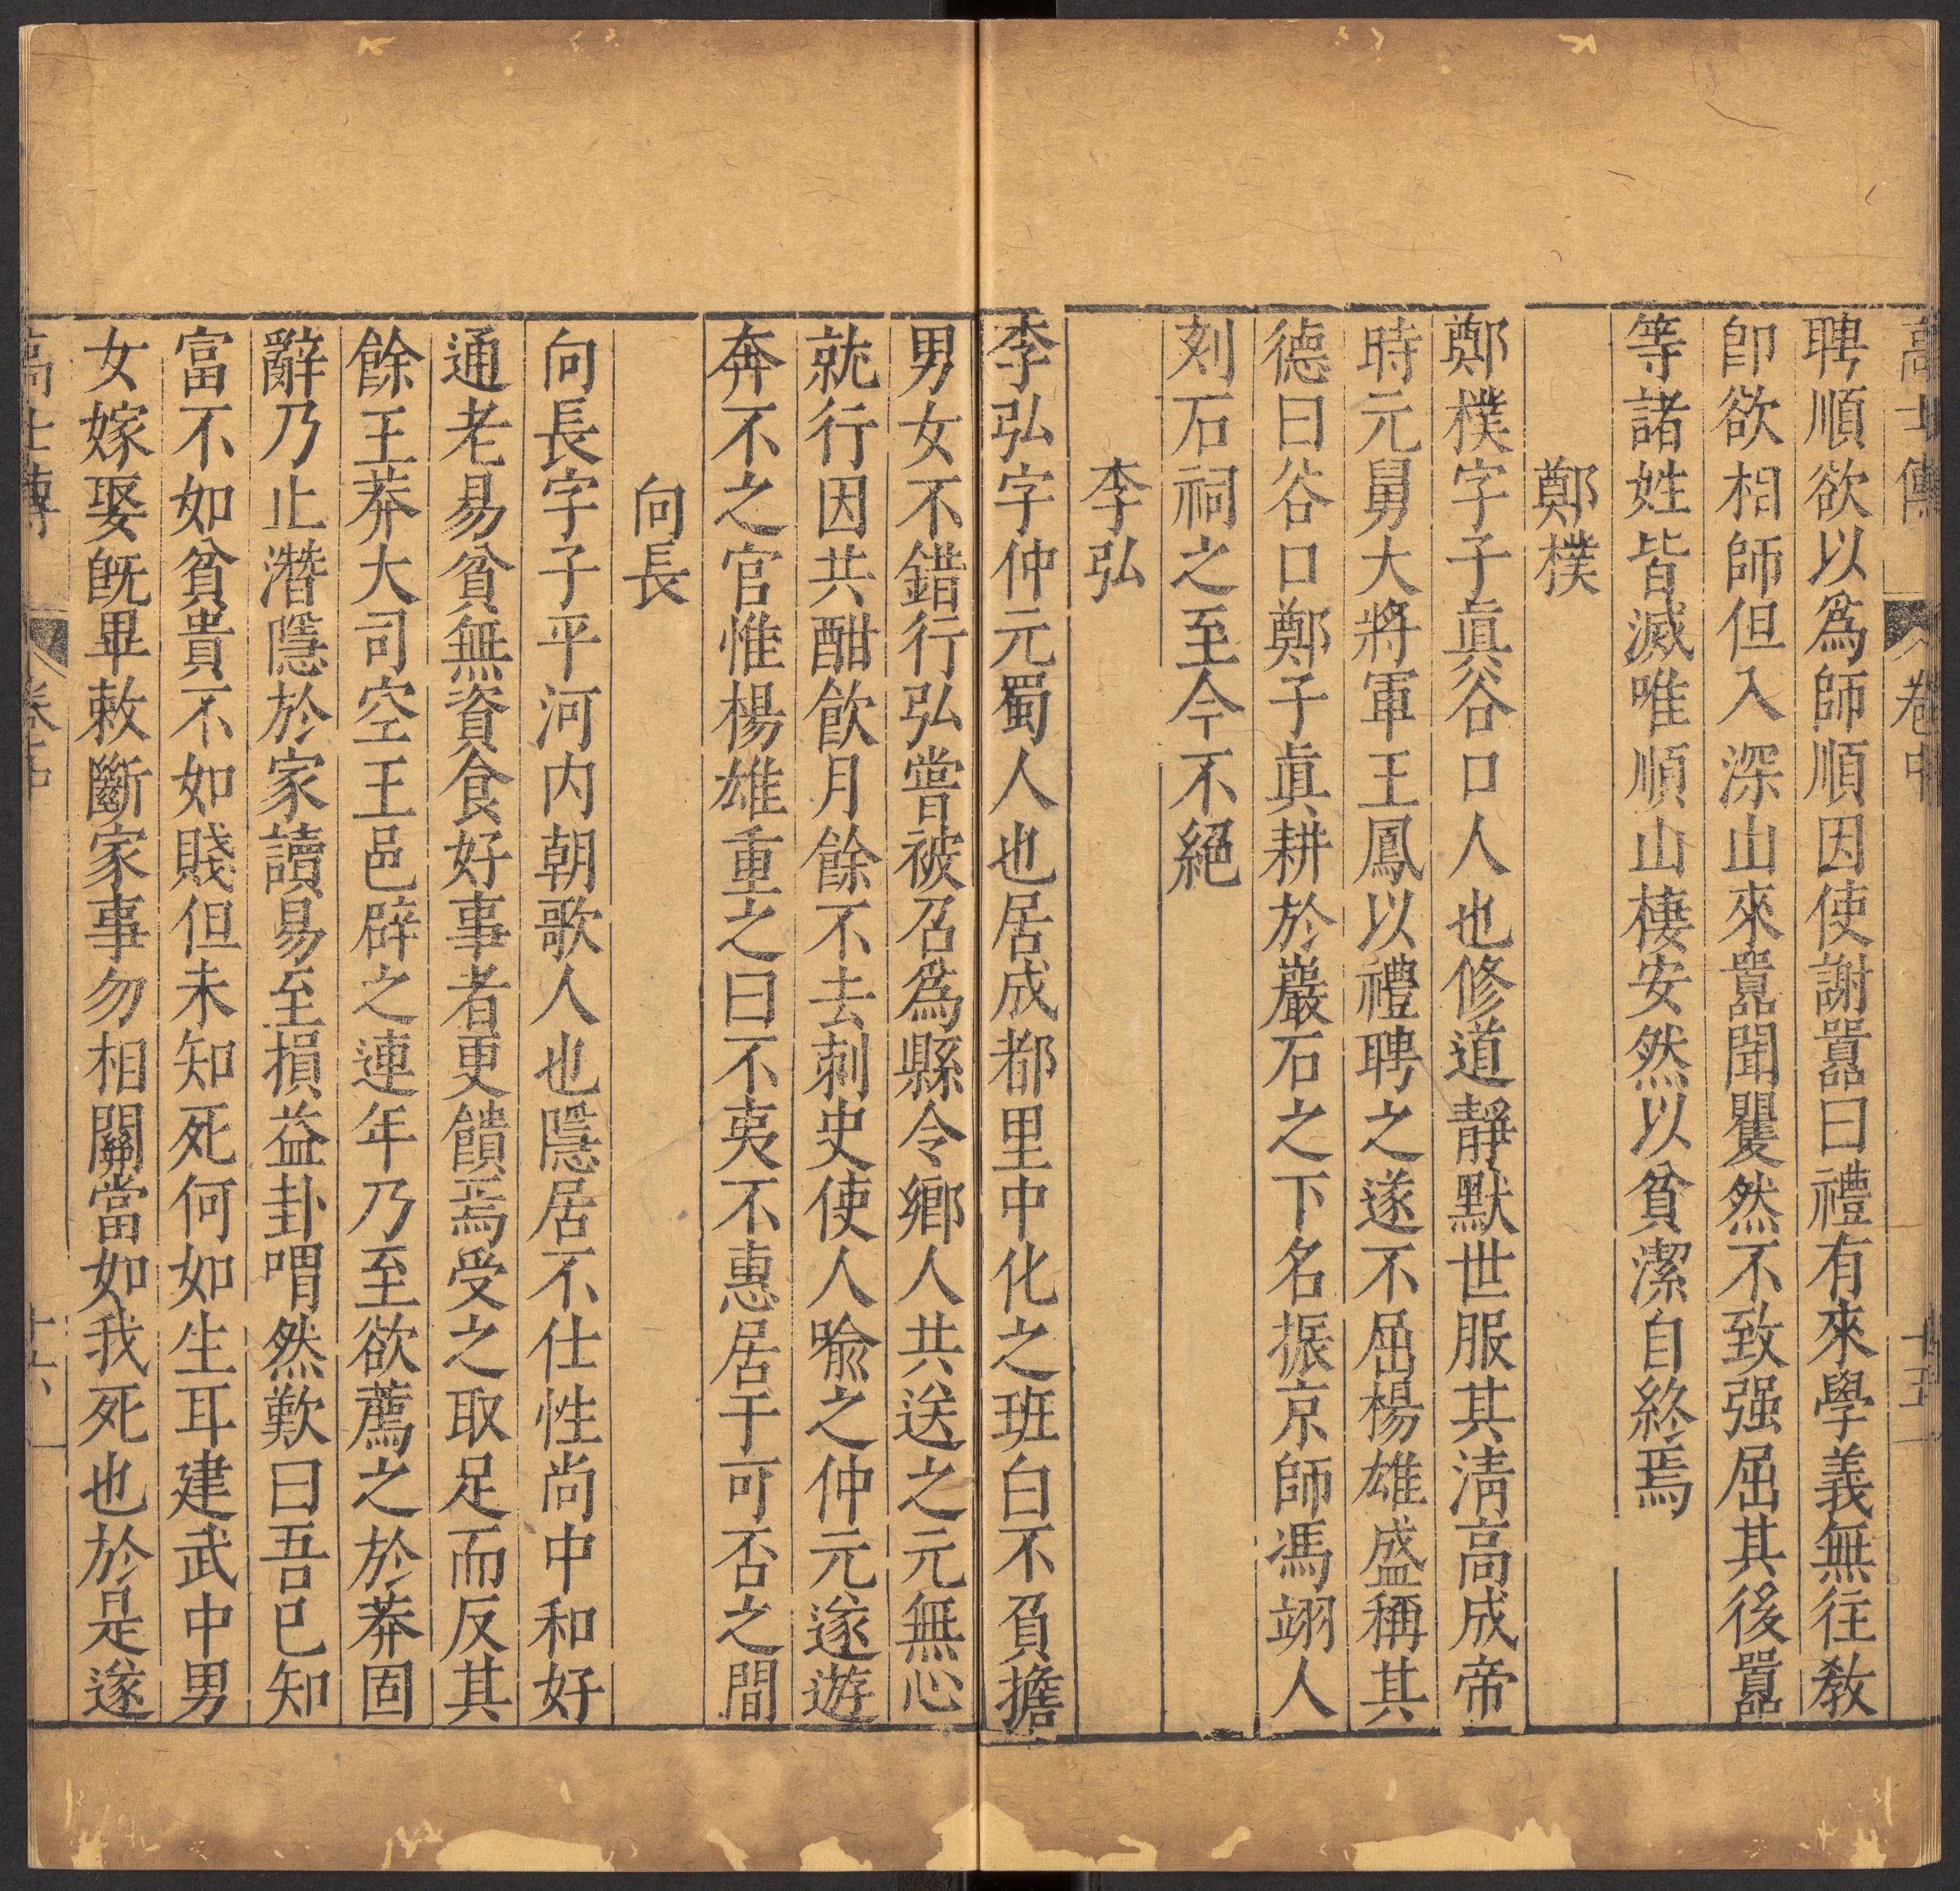 高士傳 卷中 十五
聘順欲以為師順因使謝囂曰禮有來學義無往教
卽欲相師但入深山來囂聞矍然不致强屈其後囂
等諸姓皆滅唯順山棲安然以貧潔自終焉
鄭樸
鄭樸字子眞谷口人也修道靜默世服其淸高成帝
時元舅大將軍王鳳以禮聘之遂不屈楊雄盛稱其
德曰谷口鄭子眞耕於巖石之下名振京師馮翊人
刻石祠之至今不絕
李弘
李弘字仲元蜀人也居成都里中化之班白不負擔
男女不錯行弘嘗被召爲縣令鄉人共送之元無心
就行因共酣飮月餘不去刺史使人喩之仲元遂遊
奔不之官惟楊雄重之曰不夷不惠居于可否之間
向長
向長字子平河內朝歌人也隱居不仕性尚中和好
通老易貧無資食好事者更饋焉受之取足而反其
餘王莽大司空王邑辟之連年乃至欲薦之於莽固
辭乃止潛隱於家讀易至損益卦喟然歎曰吾已知
富不如貧貴不如賤但未知死何如生耳建武中男
女嫁娶旣畢敕斷家事勿相關當如我死也於是遂
高士傳 卷中 十六